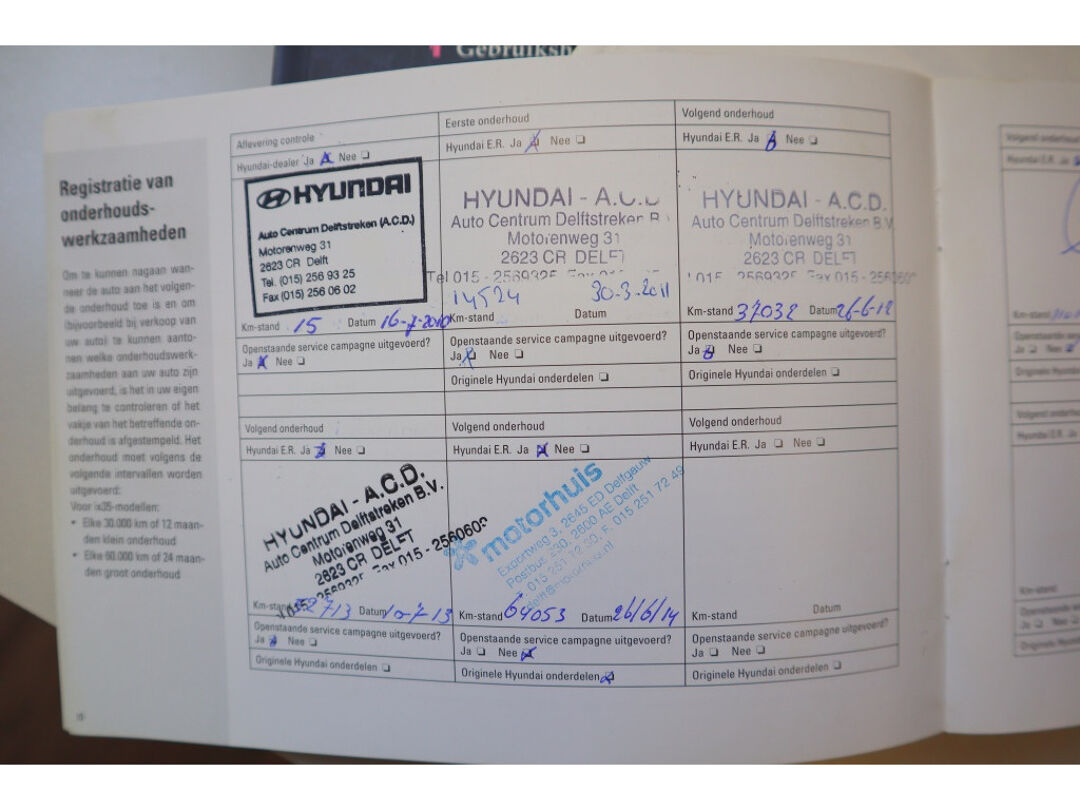 Gebruiksh
Registratie van
onderhouds-
werkzaamheden
Om te kunnen nagaan wan-
neer de auto aan het volgen-
de onderhoud toe is en om
(bijvoorbeeld bij verkoop van
uw auto) te kunnen aanto-
nen welke onderhoudswerk-
zaamheden aan uw auto zijn
uitgevoerd, is het in uw eigen
belang te controleren of het
vakje van het betreffende on-
derhoud is afgestempeld. Het
onderhoud moet volgens de
volgende intervallen worden
uitgevoerd:
Voor ix35-modellen:
• Elke 30.000 km of 12 maan-
den klein onderhoud
• Elke 60.000 km of 24 maan-
den groot onderhoud
10
Aflevering controle
Hyundai-dealer Ja Nee
HYUNDAI
Auto Centrum Delftstreken (A.C.D.)
Motorenweg 31
2623 CR Delft
Tel. (015) 256 93 25
Fax (015) 256 06 02
Km-stand 15 Datum 16-7-2010
Openstaande service campagne uitgevoerd?
Ja Nee
Eerste onderhoud
Hyundai E.R. Ja Nee
HYUNDAI - A.C.D.
Auto Centrum Delftstreken B.
Motorenweg 31
2623 CR DELFT
Tel 015 - 2569325
14524 30-3-2011
Km-stand Datum
Openstaande service campagne uitgevoerd?
Ja Nee
Originele Hyundai onderdelen
Volgend onderhoud
Hyundai E.R. Ja Nee
HYUNDAI - A.C.D.
Auto Centrum Delftstreken B.V.
Motorenweg 31
2623 CR DELFT
015 2569325 Fax 015 - 2560602
Km-stand 37038 Datum 26-6-12
Openstaande service campagne uitgevoerd?
Ja Nee
Originele Hyundai onderdelen
Volgend onderhoud
Hyundai E.R. Ja Nee
HYUNDAI - A.C.D.
Auto Centrum Delftstreken B.V.
Motorenweg 31
2623 CR DELFT
015 2569325 Fax 015 - 2560602
Km-stand 52713 Datum 10-7-13
Openstaande service campagne uitgevoerd?
Ja Nee
Originele Hyundai onderdelen
Volgend onderhoud
Hyundai E.R. Ja Nee
motorhuis
Exportweg 3, 2645 ED Delfgauw
Postbus 230, 2600 AE Delft
015 251 72 30, F. 015 251 72 49
Km-stand 64053 Datum 26/6/14
Openstaande service campagne uitgevoerd?
Ja Nee
Originele Hyundai onderdelen
Volgend onderhoud
Hyundai E.R. Ja Nee
Km-stand Datum
Openstaande service campagne uitgevoerd?
Ja Nee
Originele Hyundai onderdelen
Volgend onderhoud
Hyundai E.R. Ja
Km-stand
Openstaande
Ja Nee
Originele Hyundai
Volgend onderhoud
Hyundai E.R. Ja
Km-stand
Openstaande
Ja Nee
Originele Hyundai